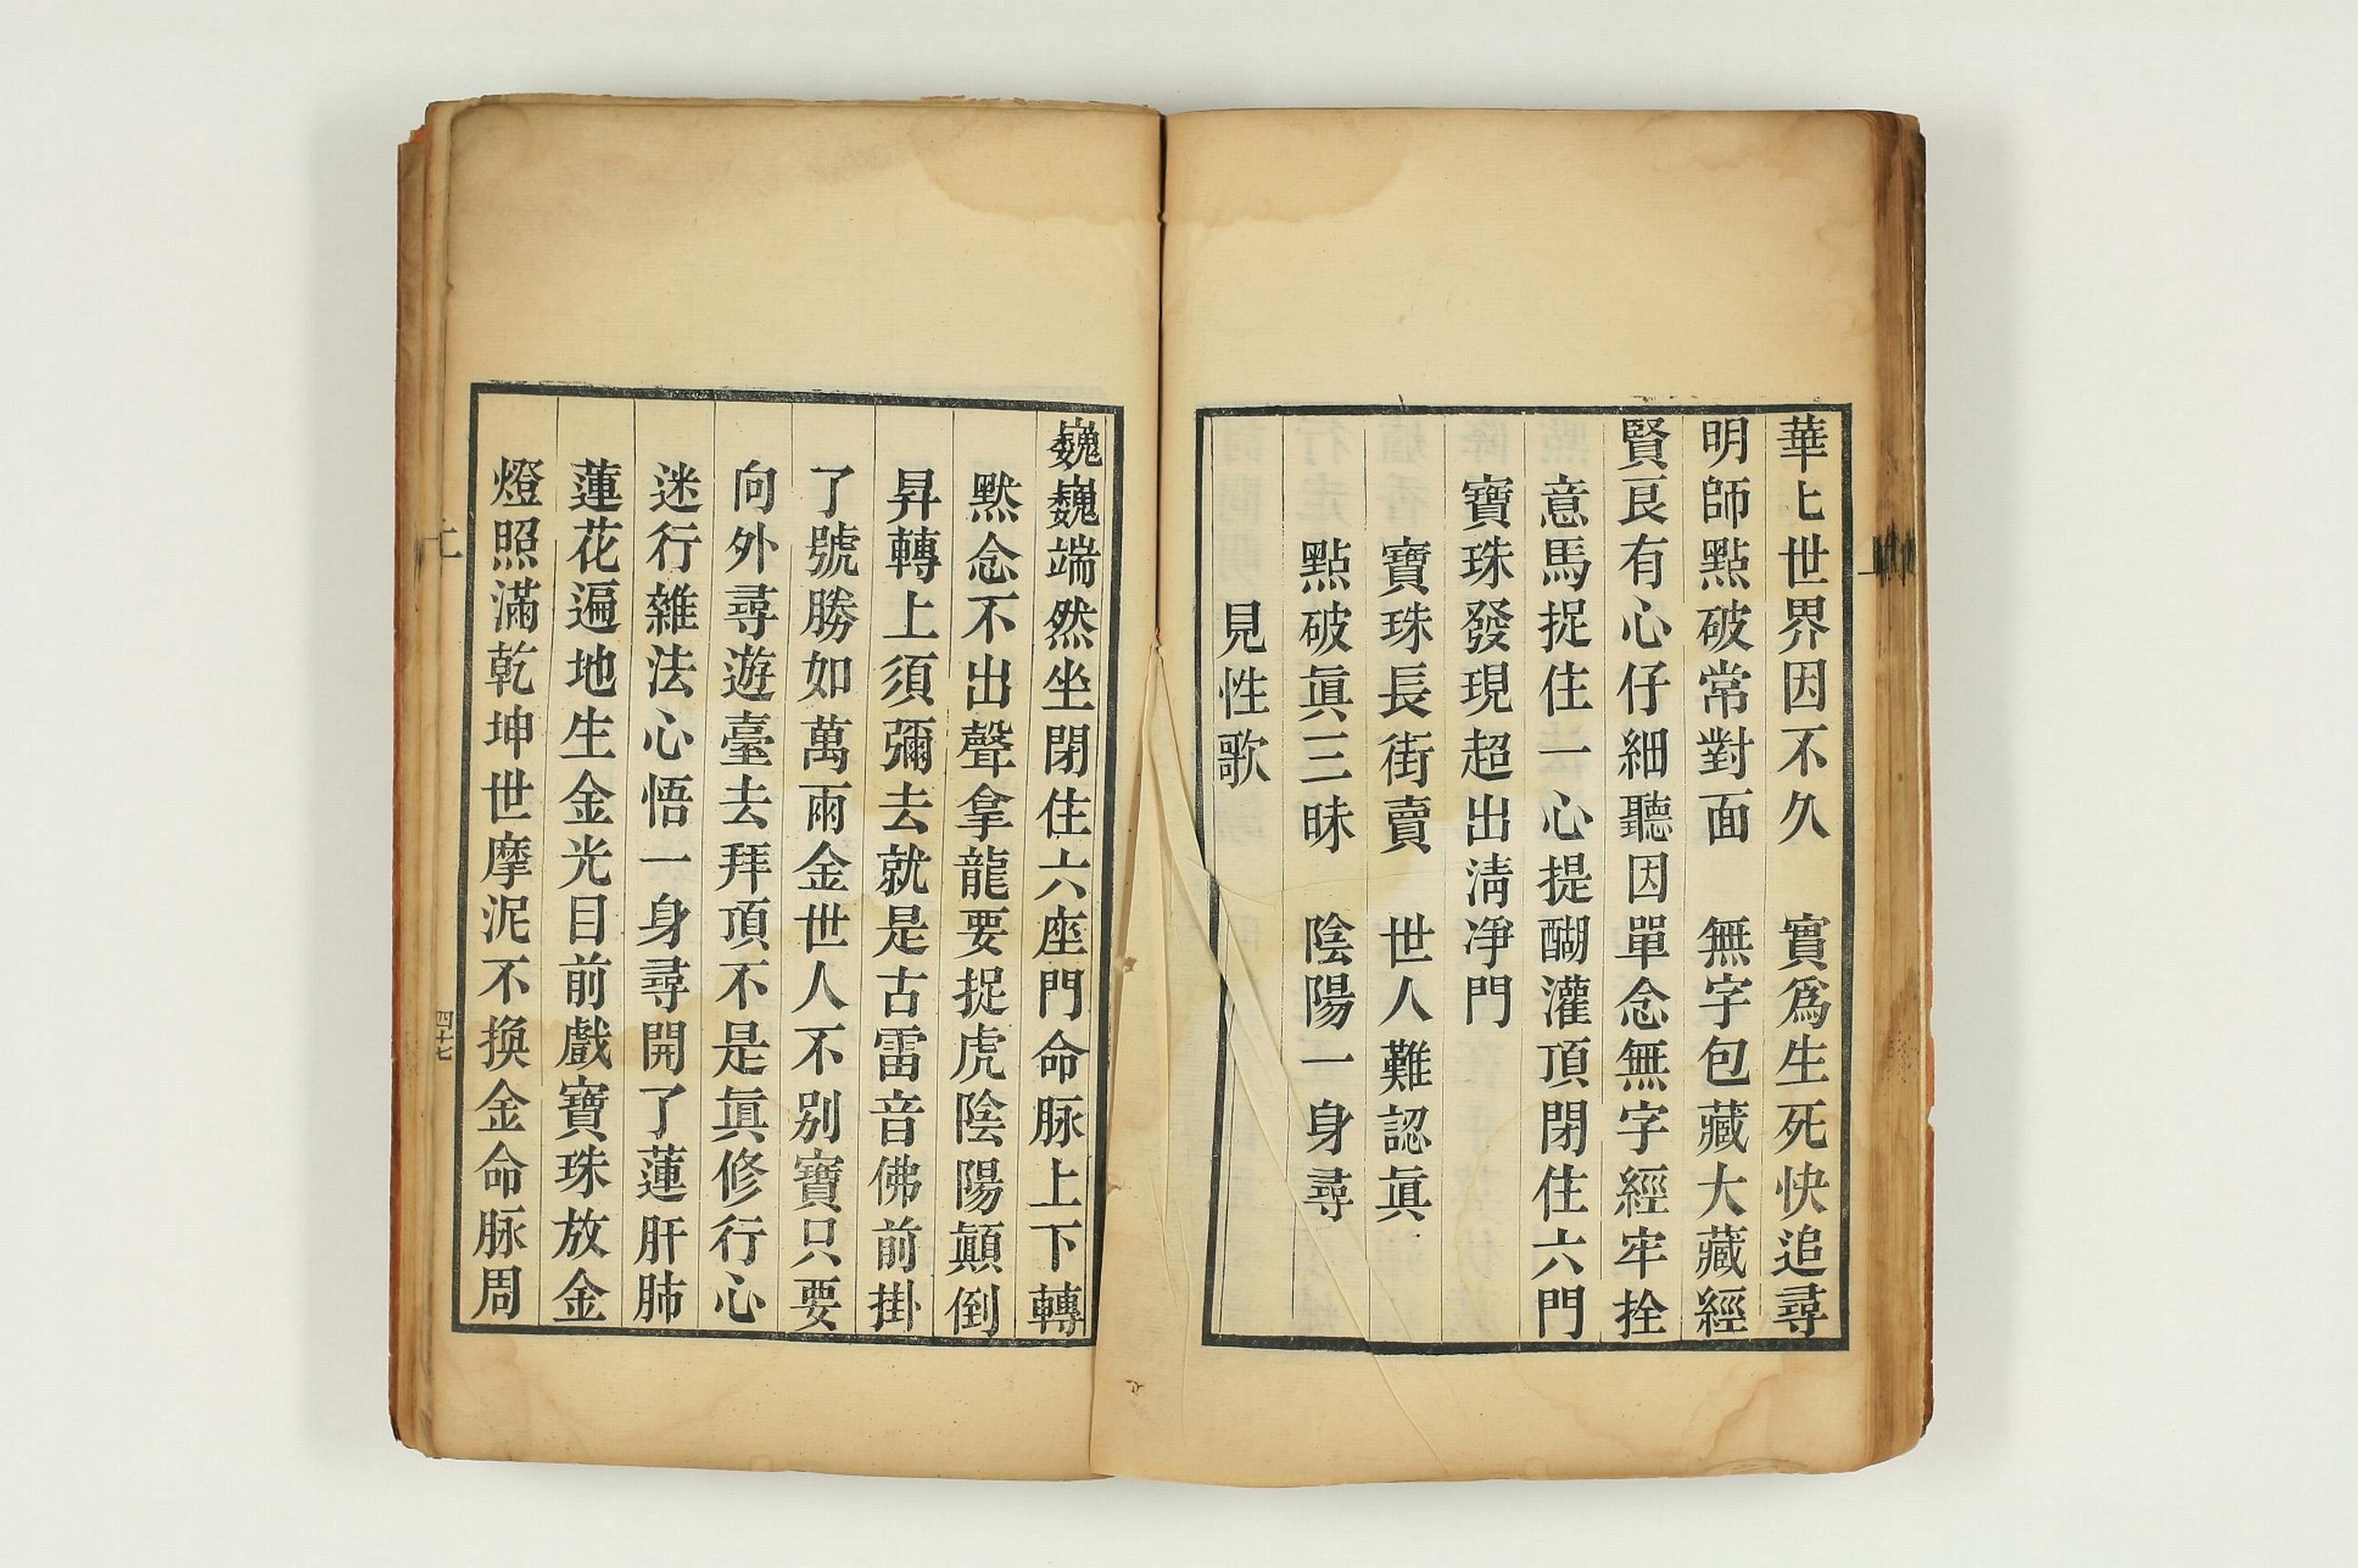 華七世界因不久　實爲生死快追尋
明師點破常對面　無字包藏大藏經
賢良有心仔細聽因單念無字經牢拴
意馬捉住一心提醐灌頂閉住六門
寶珠發現超出淸凈門
寶珠長街賣　世人難認眞
點破眞三昧　陰陽一身尋
見性歌
巍巍端然坐閉住六座門命脉上下轉
黙念不出聲拿龍要捉虎陰陽顛倒
昇轉上須彌去就是古雷音佛前掛
了號勝如萬兩金世人不别寶只要
向外尋遊臺去拜頂不是眞修行心
迷行雜法心悟一身尋開了蓮肝肺
蓮花遍地生金光目前戲寶珠放金
燈照滿乾坤世摩泥不換金命脉周
四十七